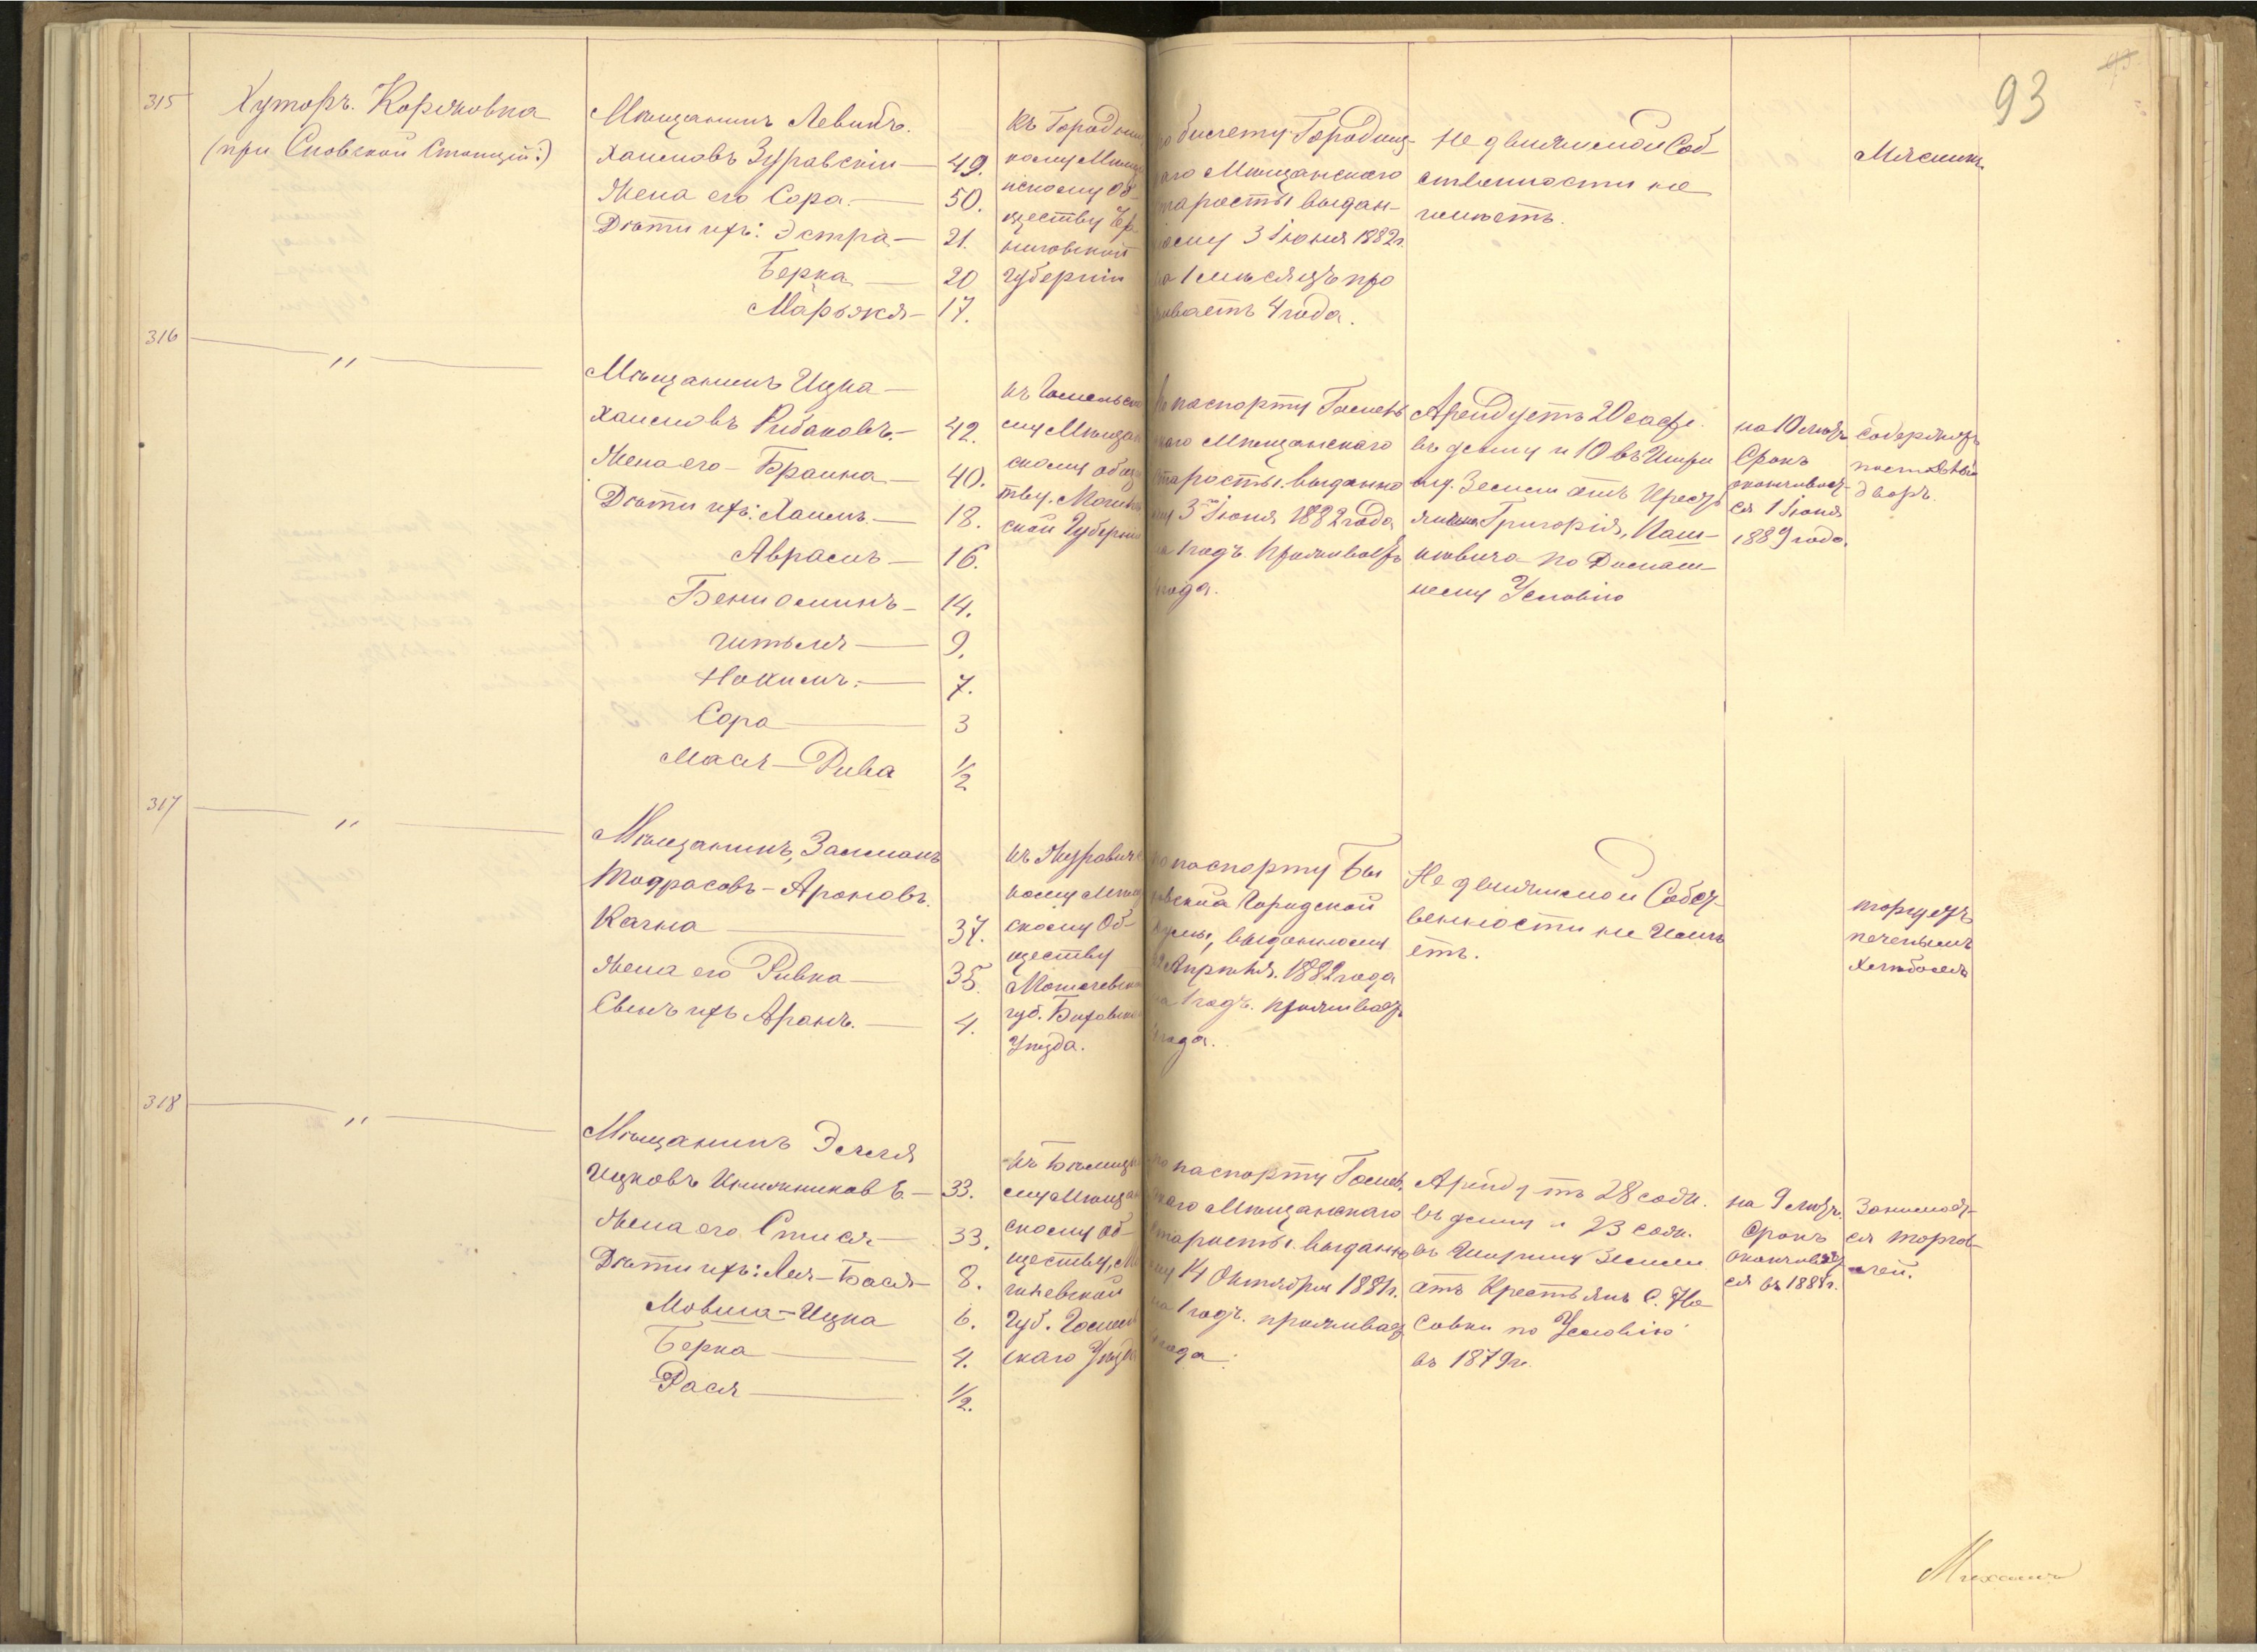 93
315
Хуторъ. Коржовка
(при Сновской Станции:)
Мѣщанинъ Левикъ.
Хаимовъ Зуравскій — 49.
Жена его Сора. — 50.
Дѣти ихъ: Эстра — 21.
Берка — 20
Марьяся — 17.
Къ Городниц
кому Мѣща
нскому Об-
ществу Чер-
ниговской
Губерніи
по билету Городниц-
каго Мѣщанскаго
старосты выдан-
ному 3 Іюня 1882 г.
на 1 мѣсяцъ про
живаетъ 4 года.
Не движимой Соб-
ственности не
имѣетъ.
Мясникъ
316
"
Мѣщанинъ Ицка —
Хаимовъ Рибаковъ. — 42.
Жена его — Браина — 40.
Дѣти ихъ: Хаимъ. — 18.
Аврамъ — 16.
Бениоминъ — 14.
Читыля — 9.
Нохимъ. — 7.
Сора — 3
Мася — Рива 1/2
къ Гомельско
му Мѣщан
скому общес
тву, Могилев
ской Губерніи
По паспорту Гомель
скаго Мѣщанскаго
старосты. выданно
му 3 Іюня 1882 года
на 1 годъ проживаетъ
4 года.
Арендуетъ 20 саж.
въ длину и 10 въ Шири
ну. Земли отъ Крестья
янина Григорія, Паш-
кевича по Домаш-
нему Условію
на 10 лѣтъ
Срокъ
оканчивает-
ся 1 Іюня
1889 года.
Содержитъ
постоялый
дворъ.
317
"
Мѣщанинъ, Залманъ
Тодрасовъ — Ароновъ.
Качна — 37.
Жена его Ривка — 35.
Сынъ ихъ Аронъ. — 4.
къ Журавичс
кому Мѣщан
скому Об-
ществу
Могилевской
губ. Быховскаго
Уѣзда.
по паспорту Бы
ховской Городской
Думы, выданному
Апрѣля. 1882 года
на 1 годъ. проживаетъ
года.
Не движимой Собст-
венности не Имѣ
етъ.
торгуетъ
печенымъ
хлѣбомъ
318
"
Мѣщанинъ Элля
Ицковъ Книжниковъ — 33.
Жена его Стися — 33.
Дѣти ихъ: Лея — Бася — 8.
Мовша — Ицка 6.
Берка — 4.
Рася — 1/2.
къ Бѣлицко
му Мѣщан
скому об-
ществу, Мо
гилевской
Губ. Гомель
скаго Уѣзда
по паспорту Гомель
скаго Мѣщанскаго
старосты. выданно
му 14 Октября 1881 г.
на 1 годъ. проживаетъ
года.
Арендуетъ 28 саж.
въ длину и 23 саж.
въ Ширину Земли
отъ Крестьянъ С. Но
совки по Условію
въ 1879 г.
на 9 лѣтъ.
Срокъ
оканчивает
ся въ 1888 г.
Занимает-
ся торгов-
лей.